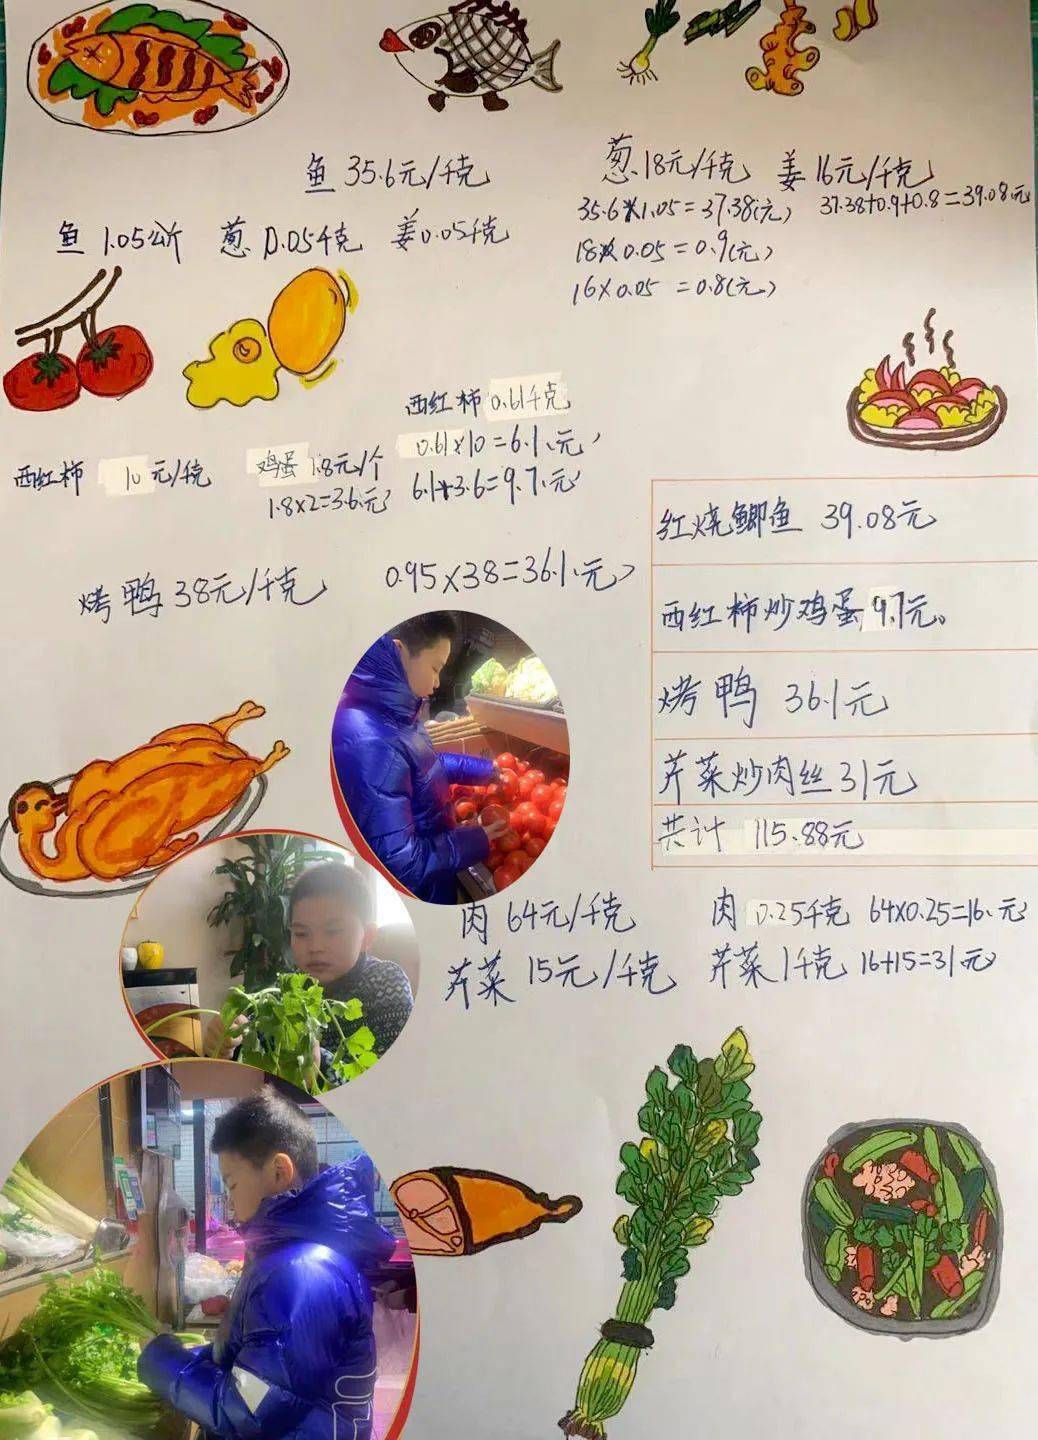 鱼 35.6元/千克
葱 18元/千克 姜 16元/千克
35.6×1.05=37.38(元) 37.38+0.9+0.8=39.08(元)
鱼 1.05公斤 葱 0.05千克 姜 0.05千克
18×0.05=0.9(元)
16×0.05=0.8(元)
西红柿 0.61千克
西红柿 10元/千克
鸡蛋 1.8元/个
0.61×10=6.1(元)
1.8×2=3.6(元)
6.1+3.6=9.7(元)
烤鸭 38元/千克 0.95×38=36.1(元)
红烧鲫鱼 39.08元
西红柿炒鸡蛋 9.7元。
烤鸭 36.1元
芹菜炒肉丝 31元
共计 115.88元
肉 64元/千克 肉 0.25千克 64×0.25=16(元)
芹菜 15元/千克 芹菜 1千克 16+15=31(元)